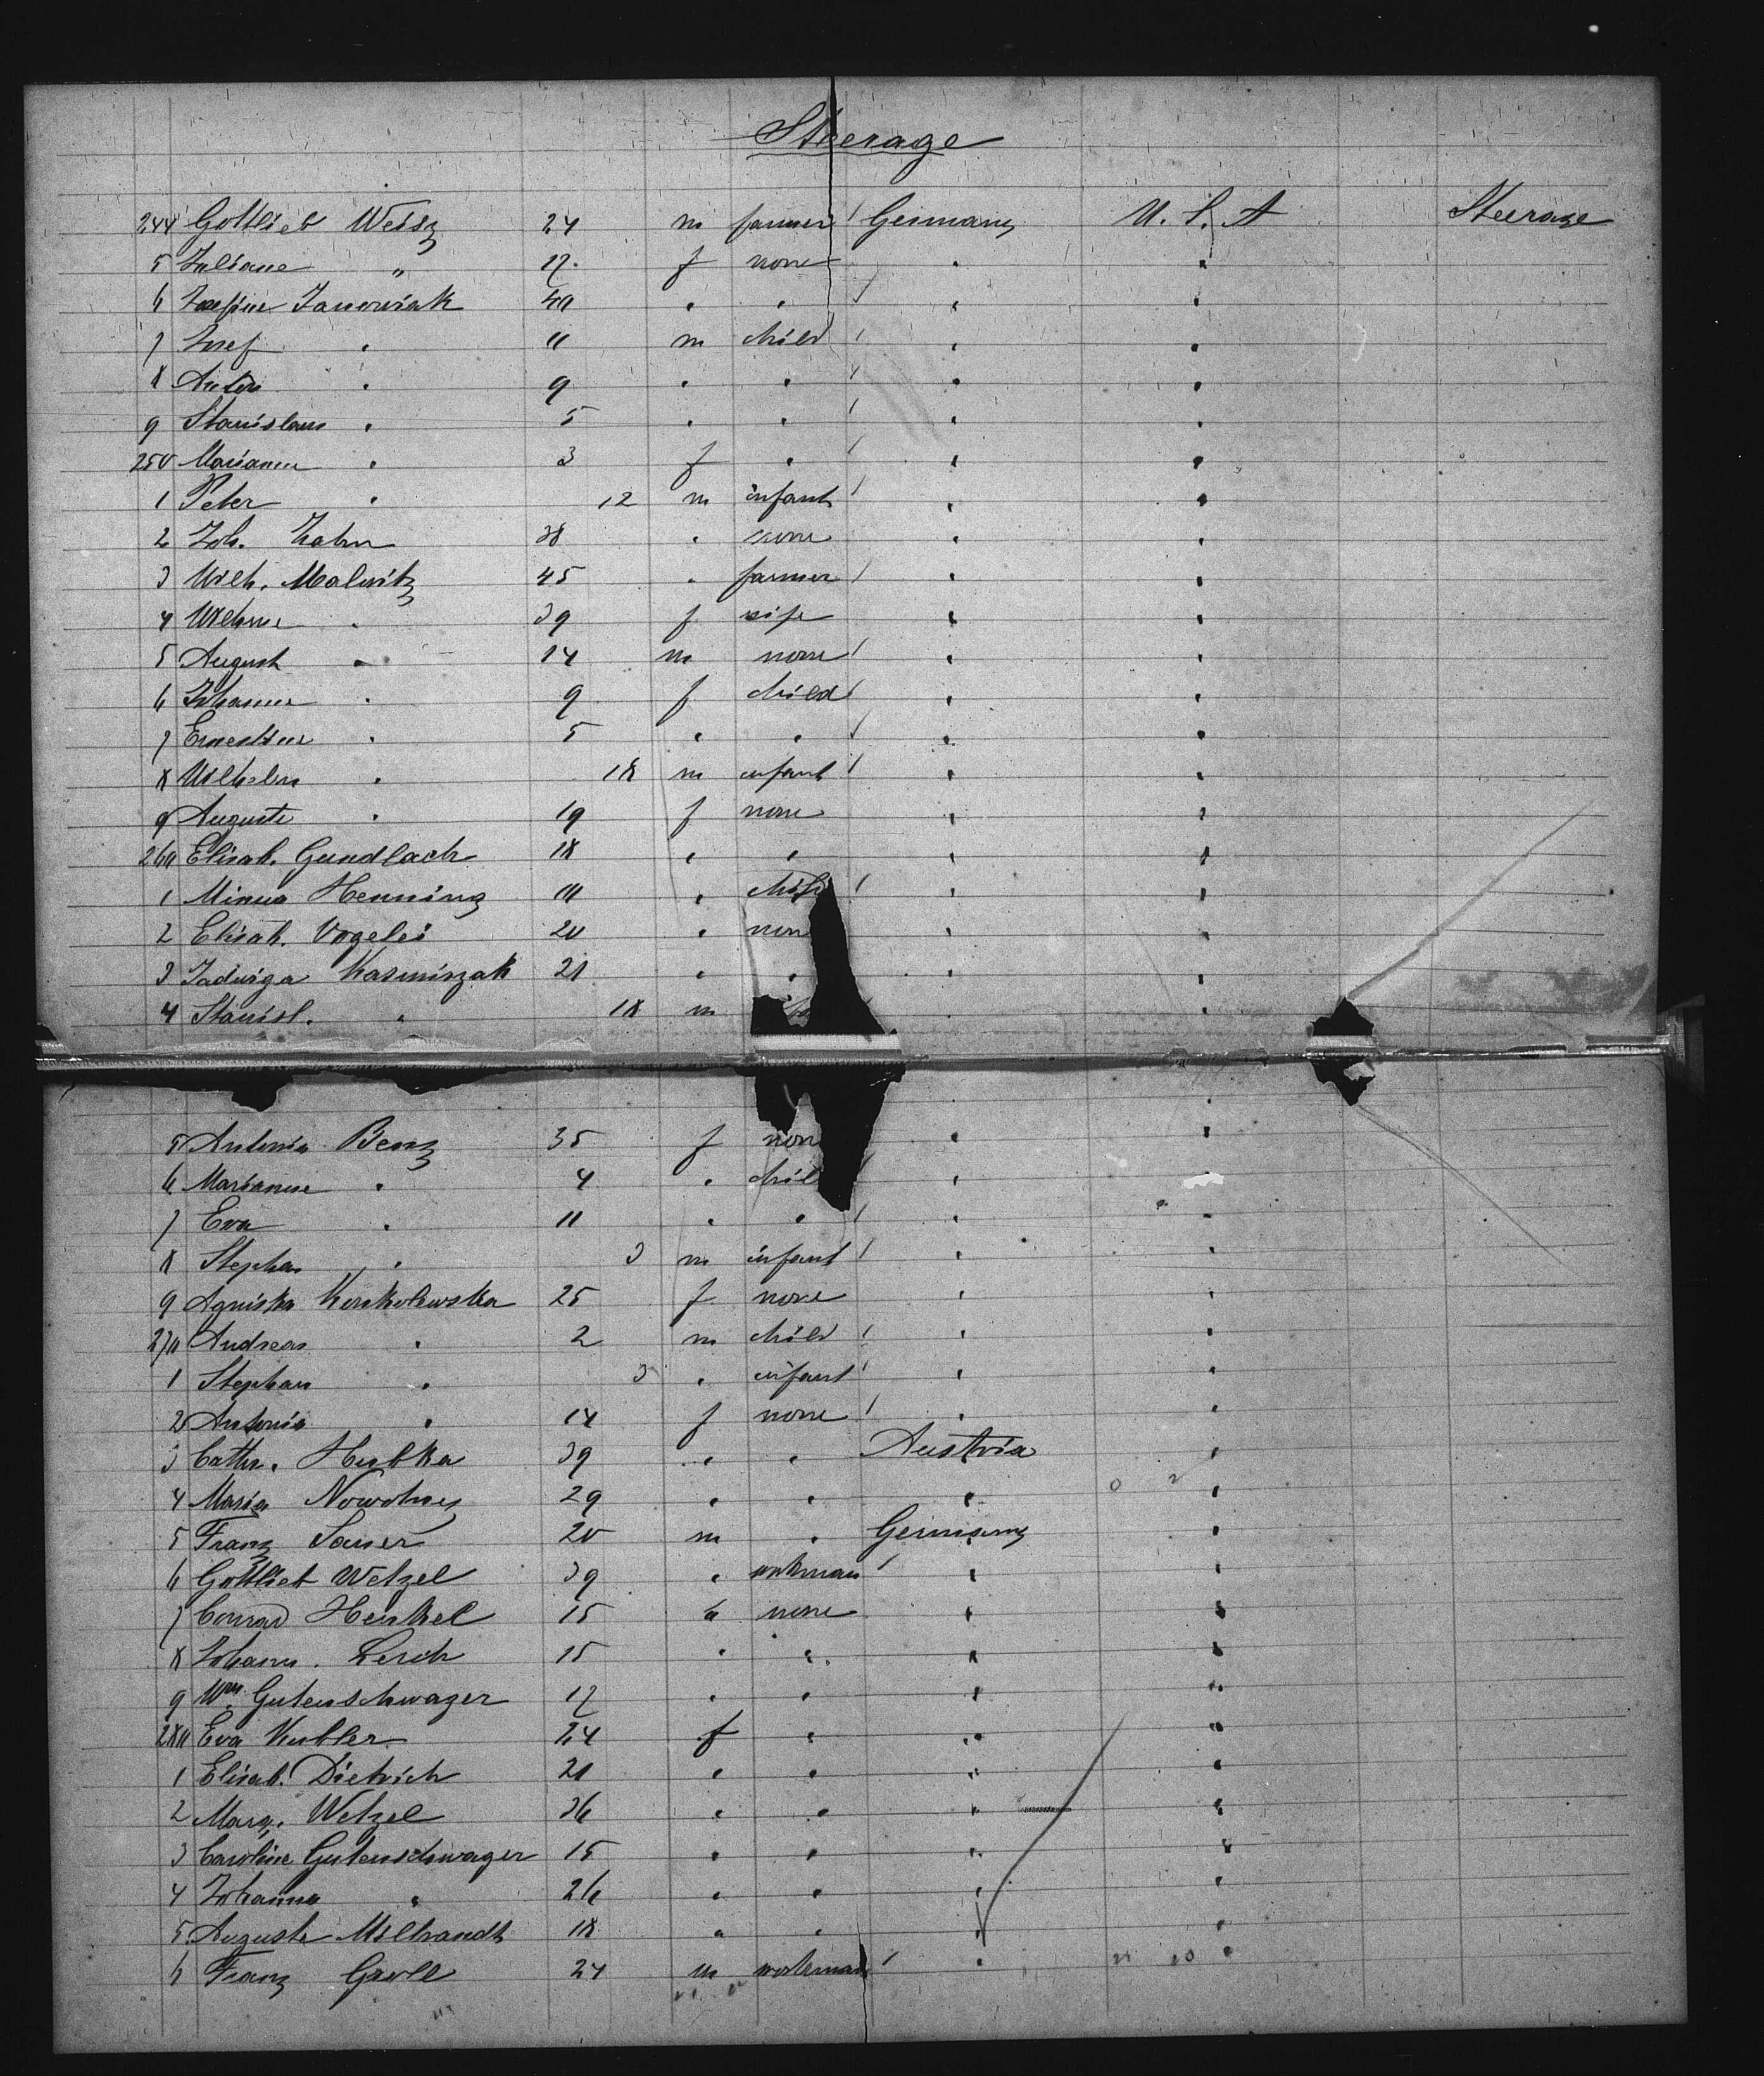 Steerage
244 Gottlieb Weisz 24 m farmer Germany U. S. A Steerage
5 Juliane " 17 f none " "
6 Josefine Janowiak 40 " " " "
7 Josef " 11 m child " "
8 Anton " 9 " " " "
9 Stanislaus " 5 " " " "
250 Marianne " 3 f " " "
1 Peter " 12 m infant " "
2 Joh. Hahn 38 " none " "
3 Wilh. Malwitz 45 " farmer " "
4 Wilhme " 39 f wife " "
5 August " 14 m none " "
6 Johanne " 9 f child " "
7 Ernestine " 5 " " " "
8 Wilhelm " 18 m infant " "
9 Auguste " 19 f none " "
260 Elisab. Gundlach 18 " " " "
1 Minna Henning 11 " child " "
2 Elisab. Vogelei 20 " none " "
3 Jadwiga Kasmiszak 21 " " " "
4 Stanisl. " 18 m " "
5 Antonia Benz 35 f non " "
6 Marianne " 4 " chil " "
7 Eva " 11 " " " "
8 Stephan " 3 m infant " "
9 Agniska Konkolewska 25 f none " "
270 Andreas " 2 m child " "
1 Stephan " 3 " infant " "
2 Antonia " 14 f none " "
3 Cathr. Hubka 39 " " Austria "
4 Maria Nowotny 29 " " " "
5 Franz Sauer 20 m " Germany "
6 Gottlieb Wetzel 39 " workman " "
7 Conrad Henkel 15 " none " "
8 Johann. Lerch 15 " " " "
9 Wm. Gutenschwager 17 " " " "
280 Eva Kubler 24 f " " "
1 Elisab. Dietrich 21 " " " "
2 Marg. Wetzel 36 " " " "
3 Caroline Gutenschwager 15 " " " "
4 Johanna " 26 " " " "
5 Auguste Milbrandt 18 " " " "
6 Franz Groll 24 m workman " "